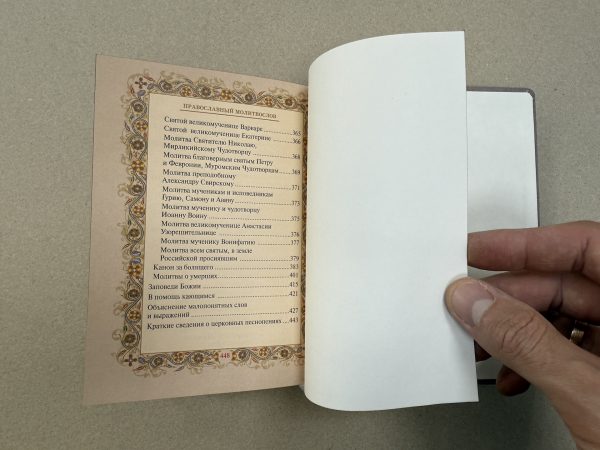 ПРАВОСЛАВНЫЙ МОЛИТВОСЛОВ
Святой великомученице Варваре ..........365
Святой великомученице Екатерине ..........366
Молитва Святителю Николаю,
Мирликийскому Чудотворцу ..........368
Молитва благоверным святым Петру
и Февронии, Муромским Чудотворцам ..........369
Молитва преподобному
Александру Свирскому ..........371
Молитва мученикам и исповедникам
Гурию, Самону и Авиву ..........373
Молитва мученику и чудотворцу
Иоанну Воину ..........375
Молитва великомученице Анастасии
Узорешительнице ..........376
Молитва мученику Вонифатию ..........377
Молитва всем святым, в земле
Российской просиявшим ..........379
Канон за болящего ..........383
Молитвы о умерших ..........401
Заповеди Божии ..........415
В помощь кающимся ..........421
Объяснение малопонятных слов
и выражений ..........427
Краткие сведения о церковных песнопениях ....443
448